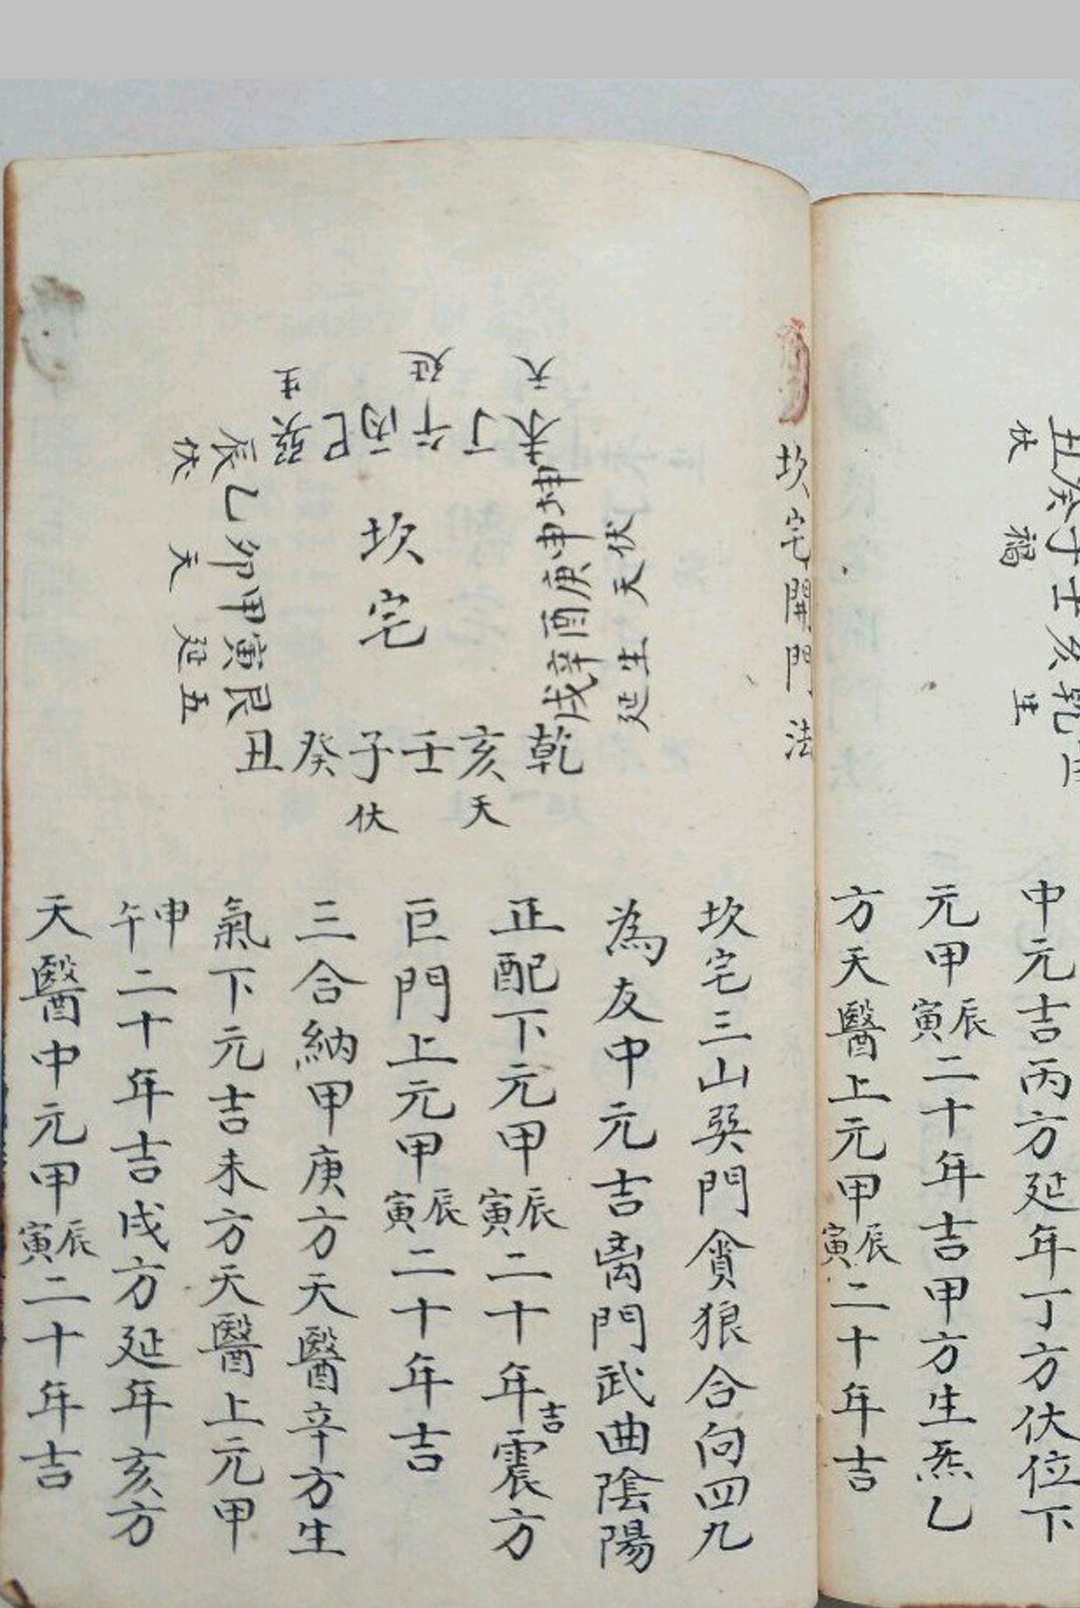 丑癸子壬亥乾
伏 福 生
中元吉丙方延年丁方伏位下
元甲寅辰二十年吉甲方生炁乙
方天醫上元甲寅辰二十年吉
坎宅開門法
天 延 生
未丁午丙巳巽
辰乙卯甲寅艮
伏 天 延五
坎宅
坤申庚酉辛戌
伏天生延
乾亥壬子癸丑
天 伏
坎宅三山巽門貪狼合向四九
為友中元吉离門武曲陰陽
正配下元甲寅辰二十年吉震方
巨門上元甲寅辰二十年吉
三合納甲庚方天醫辛方生
氣下元吉未方天醫上元甲
午申二十年吉戌方延年亥方
天醫中元甲寅辰二十年吉